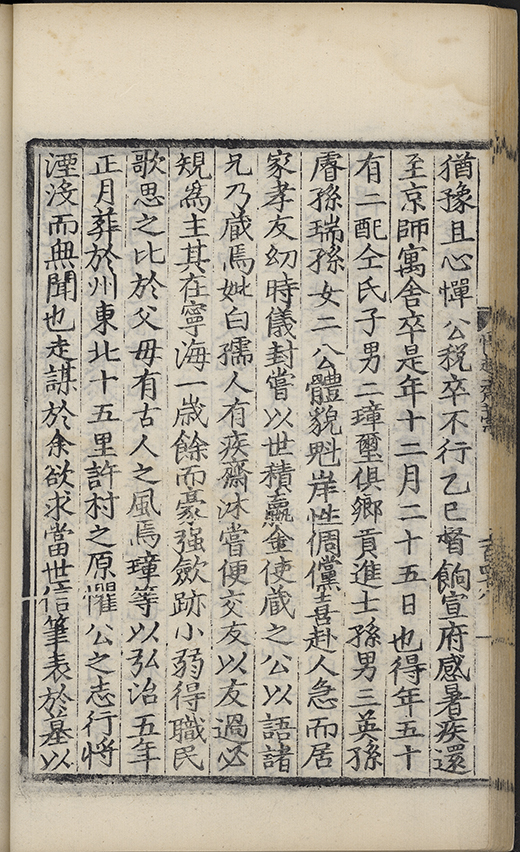 猶豫且心憚公稅卒不行乙巳督餉宣府感暑疾還
至京師寓舍卒是年十二月二十五日也得年五十
有二配仝氏子男二璋璽俱鄉貢進士孫男三英孫
睿孫瑞孫女二公體貌魁岸性倜儻喜赴人急而居
家孝友幼時儀封嘗以世積贏金使蔵之公以語諸
兄乃蔵焉妣白孺人有疾齋沐嘗便交友以友過必
規為主其在寧海一歲餘而豪强斂跡小弱得職民
歌思之比於父母有古人之風焉璋等以弘治五年
正月葬於州東北十五里許村之原懼公之志行將
湮没而無聞也走謀於余欲求當世信筆表於墓以